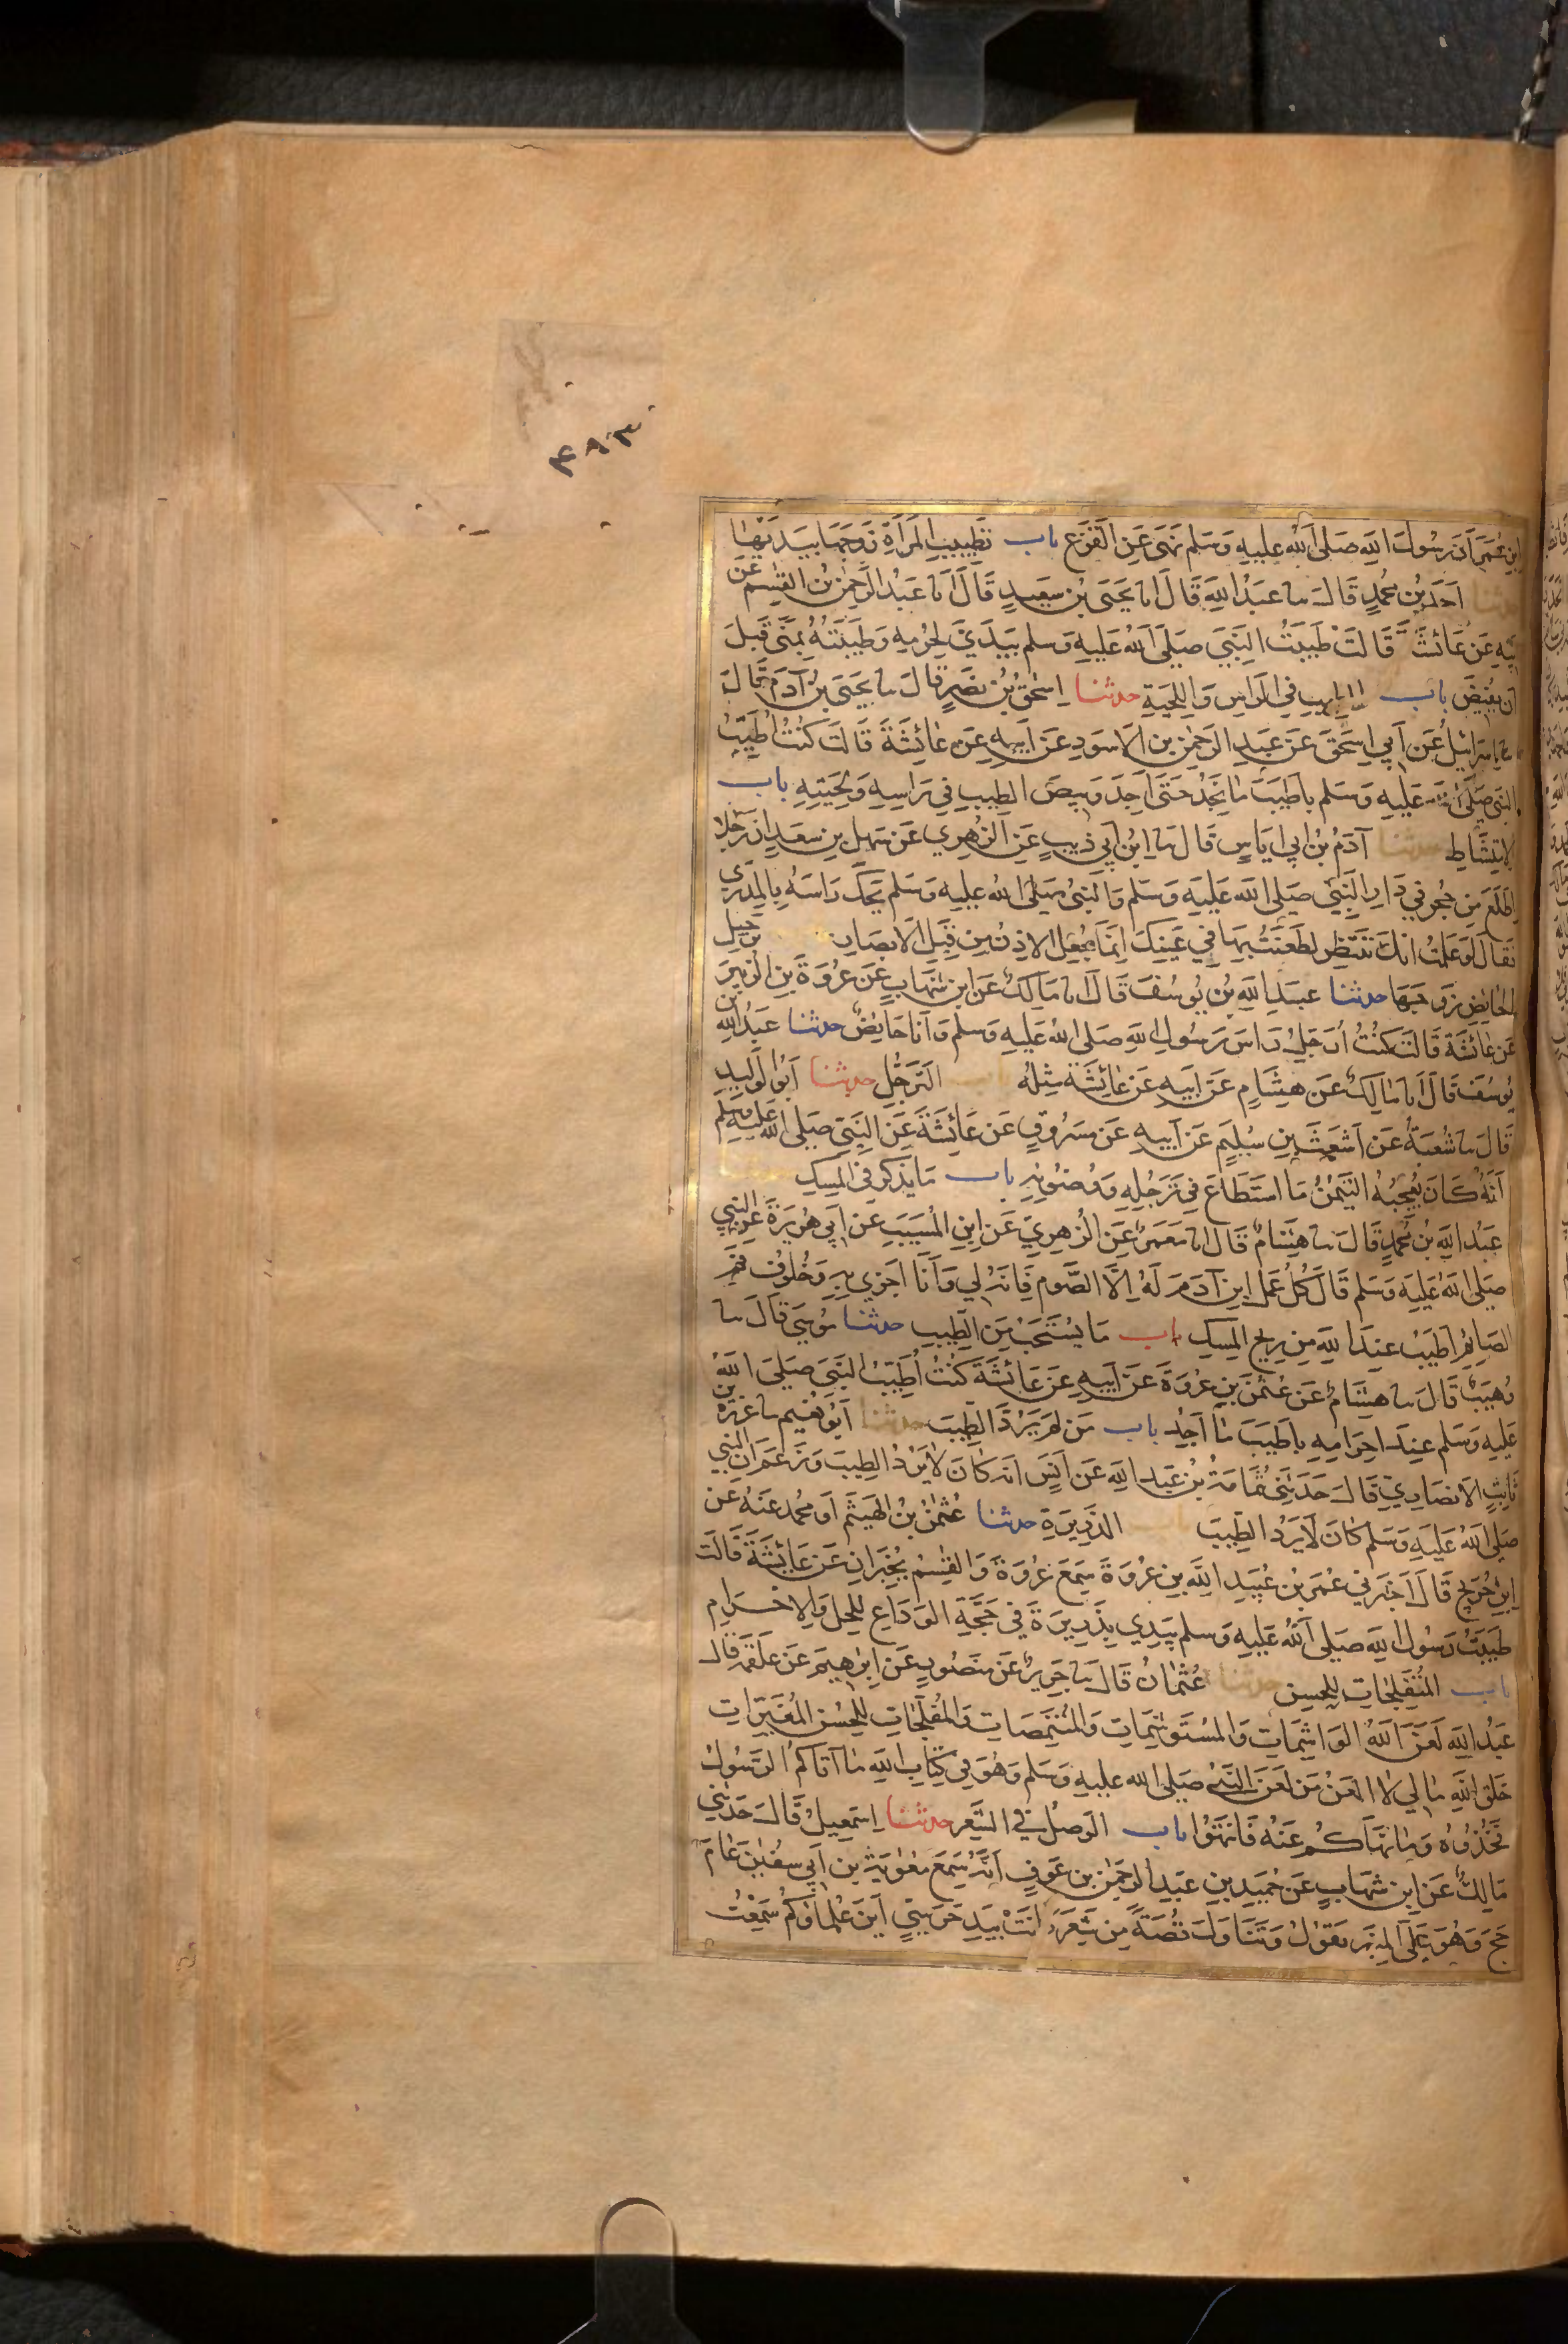 ٤٩٣
ابنِ عُمَرَ أنَّ رسُولَ اللهِ صَلى اللهُ عليهِ وَسَلم نَهَى عَنِ القَزَعِ باب تَطييبِ المَرأةِ زَوجَهَا بيَدَيْهَا
حدثنا احمَدُ بنُ محمدٍ قالَ نا عبدُ اللهِ قَالَ انا يَحيَى بن سَعيدٍ قَالَ انا عَبدُ الرَّحمٰنِ بنُ القٰسِم عَن
أبيهِ عَن عَائشَةَ قَالَتْ طَيبتُ النَّبيَ صَلى اللهُ عَليهِ وَسلم بيَدَيَّ لِحُرمِهِ وَطَيبتُهُ بمِنًى قَبلَ
أن يُفِيضَ باب الطيبِ في الرَاسِ وَاللِحيَةِ حدثنا اِسحٰقُ بنُ نَصرٍ قالَ نا يَحيَى بنُ آدَمَ قالَ
نا اِسرَائيلُ عَن أبي اِسحَقَ عَن عَبدِ الرَّحمٰنِ بنِ الاَسوَدِ عَن أبيهِ عَن عَائِشَةَ قَالَت كُنتُ أطَيِّبُ
النبيَ صَلى الله عَليهِ وَسَلم باَطيَبَ مَا يَجدُ حَتَى أجِدَ وَبيصَ الطيبِ في رَاسِهِ وَلِحيَتِهِ باب
الامتِشَاطِ حدثنا آدَمُ بنُ ابي ايَاسٍ قَالَ نا ابنُ ابي ذيبٍ عَنِ الزُهري عَن سَهلِ بنِ سَعدٍ انَّ رَجُلا
اطَّلَعَ مِن جُحرٍ في دَارِ النَبِيّ صَلى الله عَليه وَسَلم وَالنَّبيُ صَلى الله عليه وَسَلم يَحكُ رَاسَهُ بِالمِدرَى
فقالَ لَو عَلِمتُ انكَ تَنتَظِر لَطَعَنتُ بِهَا في عَينِكَ اِنمَا جُعِلَ الاِذنُ مِن قِبَلِ الاَبصَارِ باب تَرجيلِ
الحَائِضِ زَوجَهَا حدثنا عبدُ اللهِ بن يُوسُفَ قَالَ انا مَالكٌ عَن ابنِ شِهَابٍ عَن عُروَةَ بنِ الزبيرِ
عَن عَائِشَةَ قَالَت كُنتُ أُرَجِّلُ رَاسَ رَسُولِ اللهِ صَلى اللهُ عَليهِ وَسلم وَأنا حَايِضٌ حدثنا عَبدُ اللهِ بن
يُوسُفَ قَالَ انا مَالِكٌ عَن هِشَامٍ عَن ابيهِ عَن عَائِشَةَ مِثلَهُ باب التَرَجُّلِ حدثنا ابُو الوَليدِ
قَالَ نا شُعبَةُ عَن اَشعَثَ بنِ سُليمٍ عَن ابيهِ عَن مَسرُوقٍ عَن عَائِشَةَ عَنِ النَّبِيّ صَلى الله عَليهِ وسلم
أنَهُ كَانَ يُعجِبُهُ التَّيمُنُ مَا استَطَاعَ في تَرَجُلِهِ وَوُضوئِهِ باب مَا يُذكَرُ في المِسكِ حدثنا
عَبدُ اللهِ بن محمدٍ قَالَ نا هِشَامٌ قَالَ انا مَعمَرٌ عَنِ الزُهرِيّ عَن ابنِ المُسَيبِ عَن أبي هُرَيرَةَ عَنِ النبي
صَلى اللهُ عَليهِ وَسَلم قَالَ كُلُّ عَمَلِ ابنِ آدَمَ لَهُ اِلَّا الصَّوم فَانهُ لي وَأنَا اَجزي بهِ وَخُلُوفُ فمِ
الصَايِمِ أطيَبُ عِندَ اللهِ مِن ريحِ المِسكِ باب مَا يُستَحَبُّ مِنَ الطِيبِ حدثنا مُوسَى قَالَ نا
وُهيبٌ قَالَ نا هِشَامٌ عَن عُثمٰنَ بنِ عُروَةَ عَن ابيهِ عَن عَائشَةَ كُنتُ أُطَيِّبُ النَبيَ صَلى اللهُ
عَليهِ وَسَلم عِندَ احرَامِهِ باَطيَبَ مَا اَجِدُ باب مَن لم يَرُدَّ الطِيبَ حدثنا ابُو نُعيم نا عَزرَةُ بن
ثَابتٍ الاَنصَاريّ قَالَ حَدَّثَنِي ثُمَامَةُ بنُ عَبدِ اللهِ عَن أنَسٍ انهُ كَانَ لَا يَرُدُ الطِيبَ وَزَعَمَ أنَّ النبي
صَلى اللهُ عَليهِ وَسَلم كَانَ لَا يَرُدُ الطِيبَ باب الذَّرِيرَةِ حدثنا عُثمٰنُ بنُ الهَيثَمِ أو محمدٌ عَنهُ عَن
ابنِ جُرَيجٍ قَالَ اَخبَرَني عُمَرُ بنُ عُبيدِ اللهِ بنِ عُروَةَ سَمِعَ عُروَةَ وَالقٰسِمَ يُخبِرَانِ عَن عَائِشَةَ قَالَت
طَيبتُ رَسُولَ اللهِ صَلى اللهُ عَليهِ وَسلم بيَدي بِذَرِيرَةَ في حَجَّةِ الوَدَاعِ لِلحِلِ وَالاِحرَامِ
باب المُتَفَلِجَاتِ لِلحُسنِ حدثنا عُثمَانُ قَالَ نا جَرِيرٌ عَن مَنصُورٍ عَن اِبرٰهيمَ عَن عَلقَمَةَ قَالَ
عَبدُ اللهِ لَعَنَ اللهُ الوَاشِمَاتِ وَالمُستَوشِمَاتِ وَالمُتَنَمِصَاتِ وَالمُتَفَلِّجَاتِ لِلحُسنِ المُغَيِّرَاتِ
خَلقَ اللهِ مَا لي لَا العَنُ مَن لَعَنَ النَّبيُ صَلى الله عليهِ وَسَلم وَهُوَ في كِتَابِ اللهِ مَا آتَاكُمُ الرَّسُولُ
فَخُذُوهُ وَمَا نَهَاكُم عَنهُ فَانتَهُوا باب الوَصلُ في الشَّعرِ حدثنا اِسمٰعيلُ قَالَ حَدثَني
مَالِكٌ عَن ابنِ شِهَابٍ عَن حُمَيدِ بنِ عَبدِ الرَّحمٰنِ بنِ عَوفٍ اَنهُ سَمِعَ مُعٰوِيَةَ بن أبي سُفيٰنَ عَامَ
حَجَّ وَهُوَ عَلَى المِنبَرِ يَقُولُ وَتَنَاوَلَ قُصَةً مِن شَعَرٍ كَانَتْ بيَدِ حَرَسِيٍّ أينَ عُلَمَاؤكُم سَمِعتُ